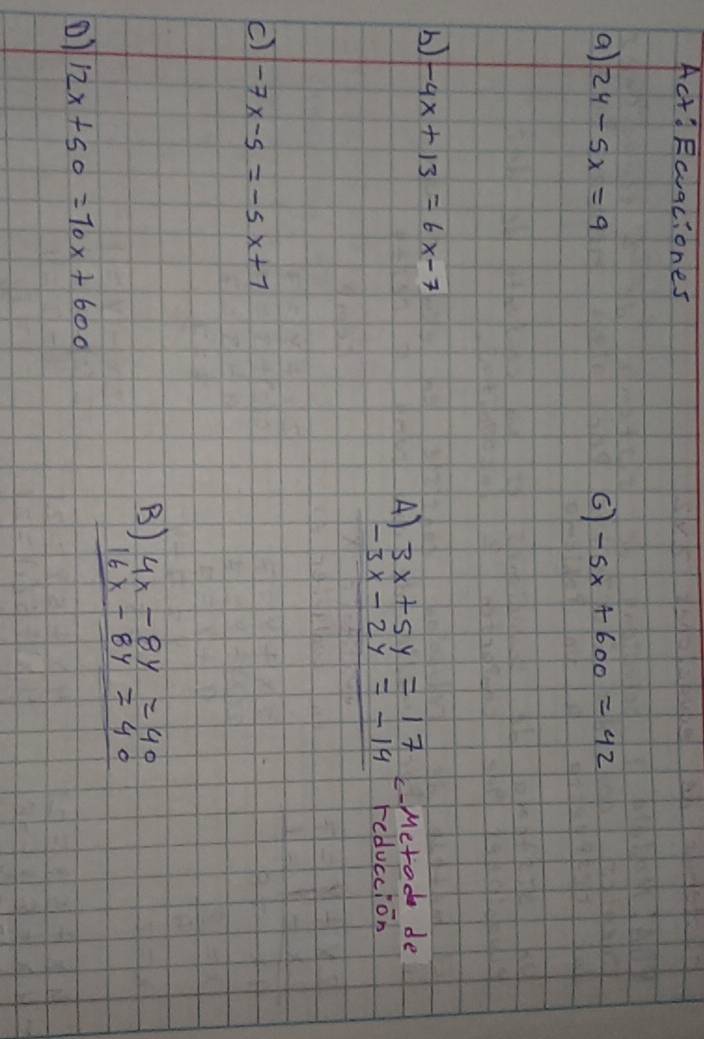 Act: Ecuaciones
a) 24 - 5x = 9
b) -4x + 13 = 6x - 7
c) -7x - 5 = -5x + 7
D) 12x + 50 = 10x + 600
G) -5x + 600 = 42
A) 3x + 5y = 17
-3x - 2y = -14
<- Metodo de
reducción
B) 4x - 8y = 40
16x - 8y = 40